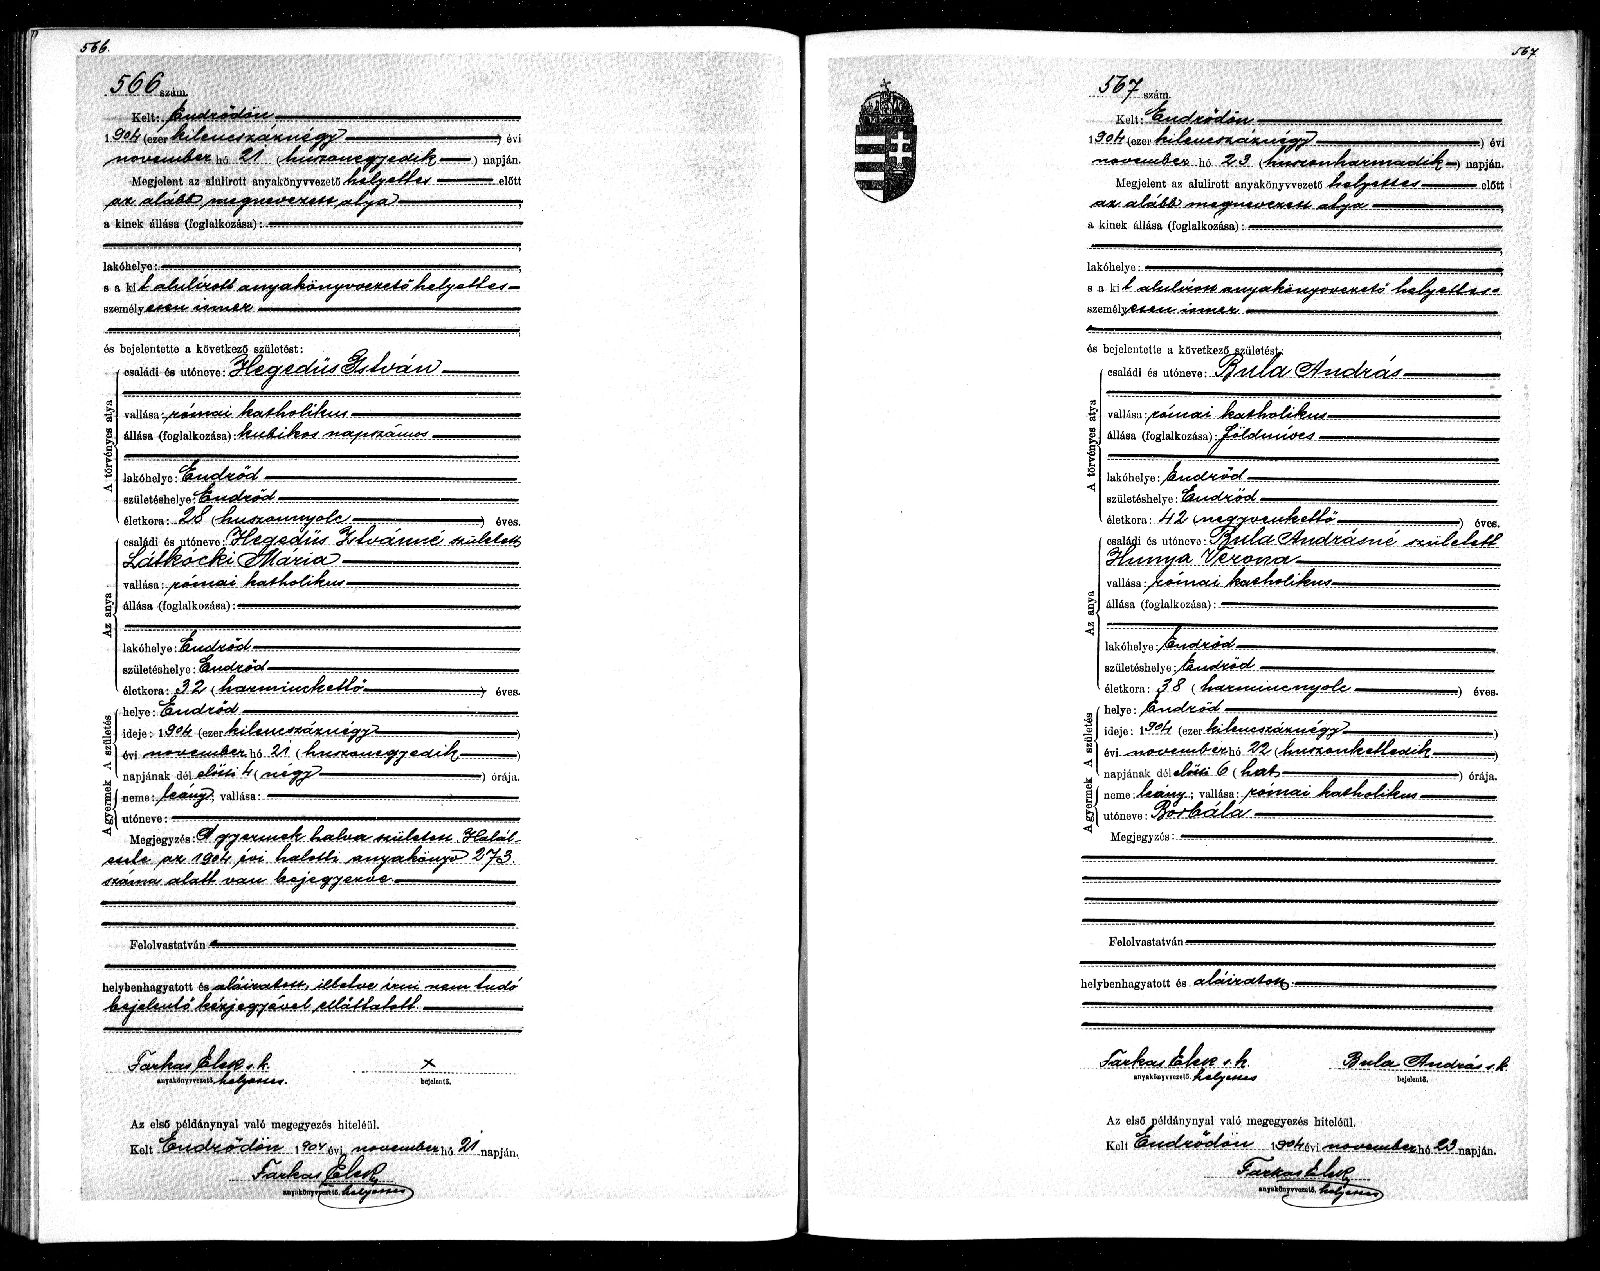 566.
566 szám.
Kelt: Endrődön
1904 (ezer kilencszáznégy) évi
november hó 21 (huszonegyedik) napján.
Megjelent az alulirott anyakönyvvezető helyettes előtt
az alább megnevezett atya
a kinek állása (foglalkozása):
lakóhelye:
s a kit alulírott anyakönyvvezető helyettes
személyesen ismer
és bejelentette a következő születést:
A törvényes atya
családi és utóneve: Hegedüs István
vallása: római katholikus
állása (foglalkozása): kubikos napszámos
lakóhelye: Endrőd
születéshelye: Endrőd
életkora: 28 (huszonnyolc) éves.
Az anya
családi és utóneve: Hegedüs Istvánné született
Látkócki Mária
vallása: római katholikus
állása (foglalkozása):
lakóhelye: Endrőd
születéshelye: Endrőd
életkora: 32 (harminckettő) éves.
A születés
helye: Endrőd
ideje: 1904 (ezer kilencszáznégy)
évi november hó 21 (huszonegyedik)
napjának dél előtti 4 (négy) órája.
A gyermek
neme: leány; vallása:
utóneve:
Megjegyzés: A gyermek halva született. Halál-
esete az 1904 évi halotti anyakönyv 273.
száma alatt van bejegyezve
Felolvastatván
helybenhagyatott és aláiratott, illetve irni nem tudó
bejelentő kézjegyével elláttatott
Farkas Elek s. k. x
anyakönyvvezető. helyettes. bejelentő.
Az első példánynyal való megegyezés hiteléül.
Kelt Endrődön 1904 évi november hó 21 napján.
Farkas Elek
anyakönyvvezető. helyettes
567
567 szám.
Kelt: Endrődön
1904 (ezer kilencszáznégy) évi
november hó 23 (huszonharmadik) napján.
Megjelent az alulirott anyakönyvvezető helyettes előtt
az alább megnevezett atya
a kinek állása (foglalkozása):
lakóhelye:
s a kit alulírott anyakönyvvezető helyettes
személyesen ismer
és bejelentette a következő születést:
A törvényes atya
családi és utóneve: Bula András
vallása: római katholikus
állása (foglalkozása): földmüves
lakóhelye: Endrőd
születéshelye: Endrőd
életkora: 42 (negyvenkettő) éves.
Az anya
családi és utóneve: Bula Andrásné született
Hunya Verona
vallása: római katholikus
állása (foglalkozása):
lakóhelye: Endrőd
születéshelye: Endrőd
életkora: 38 (harmincnyolc) éves.
A születés
helye: Endrőd
ideje: 1904 (ezer kilencszáznégy)
évi november hó 22 (huszonkettedik)
napjának dél előtti 6 (hat) órája.
A gyermek
neme: leány; vallása: római katholikus
utóneve: Borbála
Megjegyzés:
Felolvastatván
helybenhagyatott és aláiratott.
Farkas Elek s. k. Bula András s. k.
anyakönyvvezető. helyettes bejelentő.
Az első példánynyal való megegyezés hiteléül.
Kelt Endrődön 1904 évi november hó 23 napján.
Farkas Elek
anyakönyvvezető. helyettes